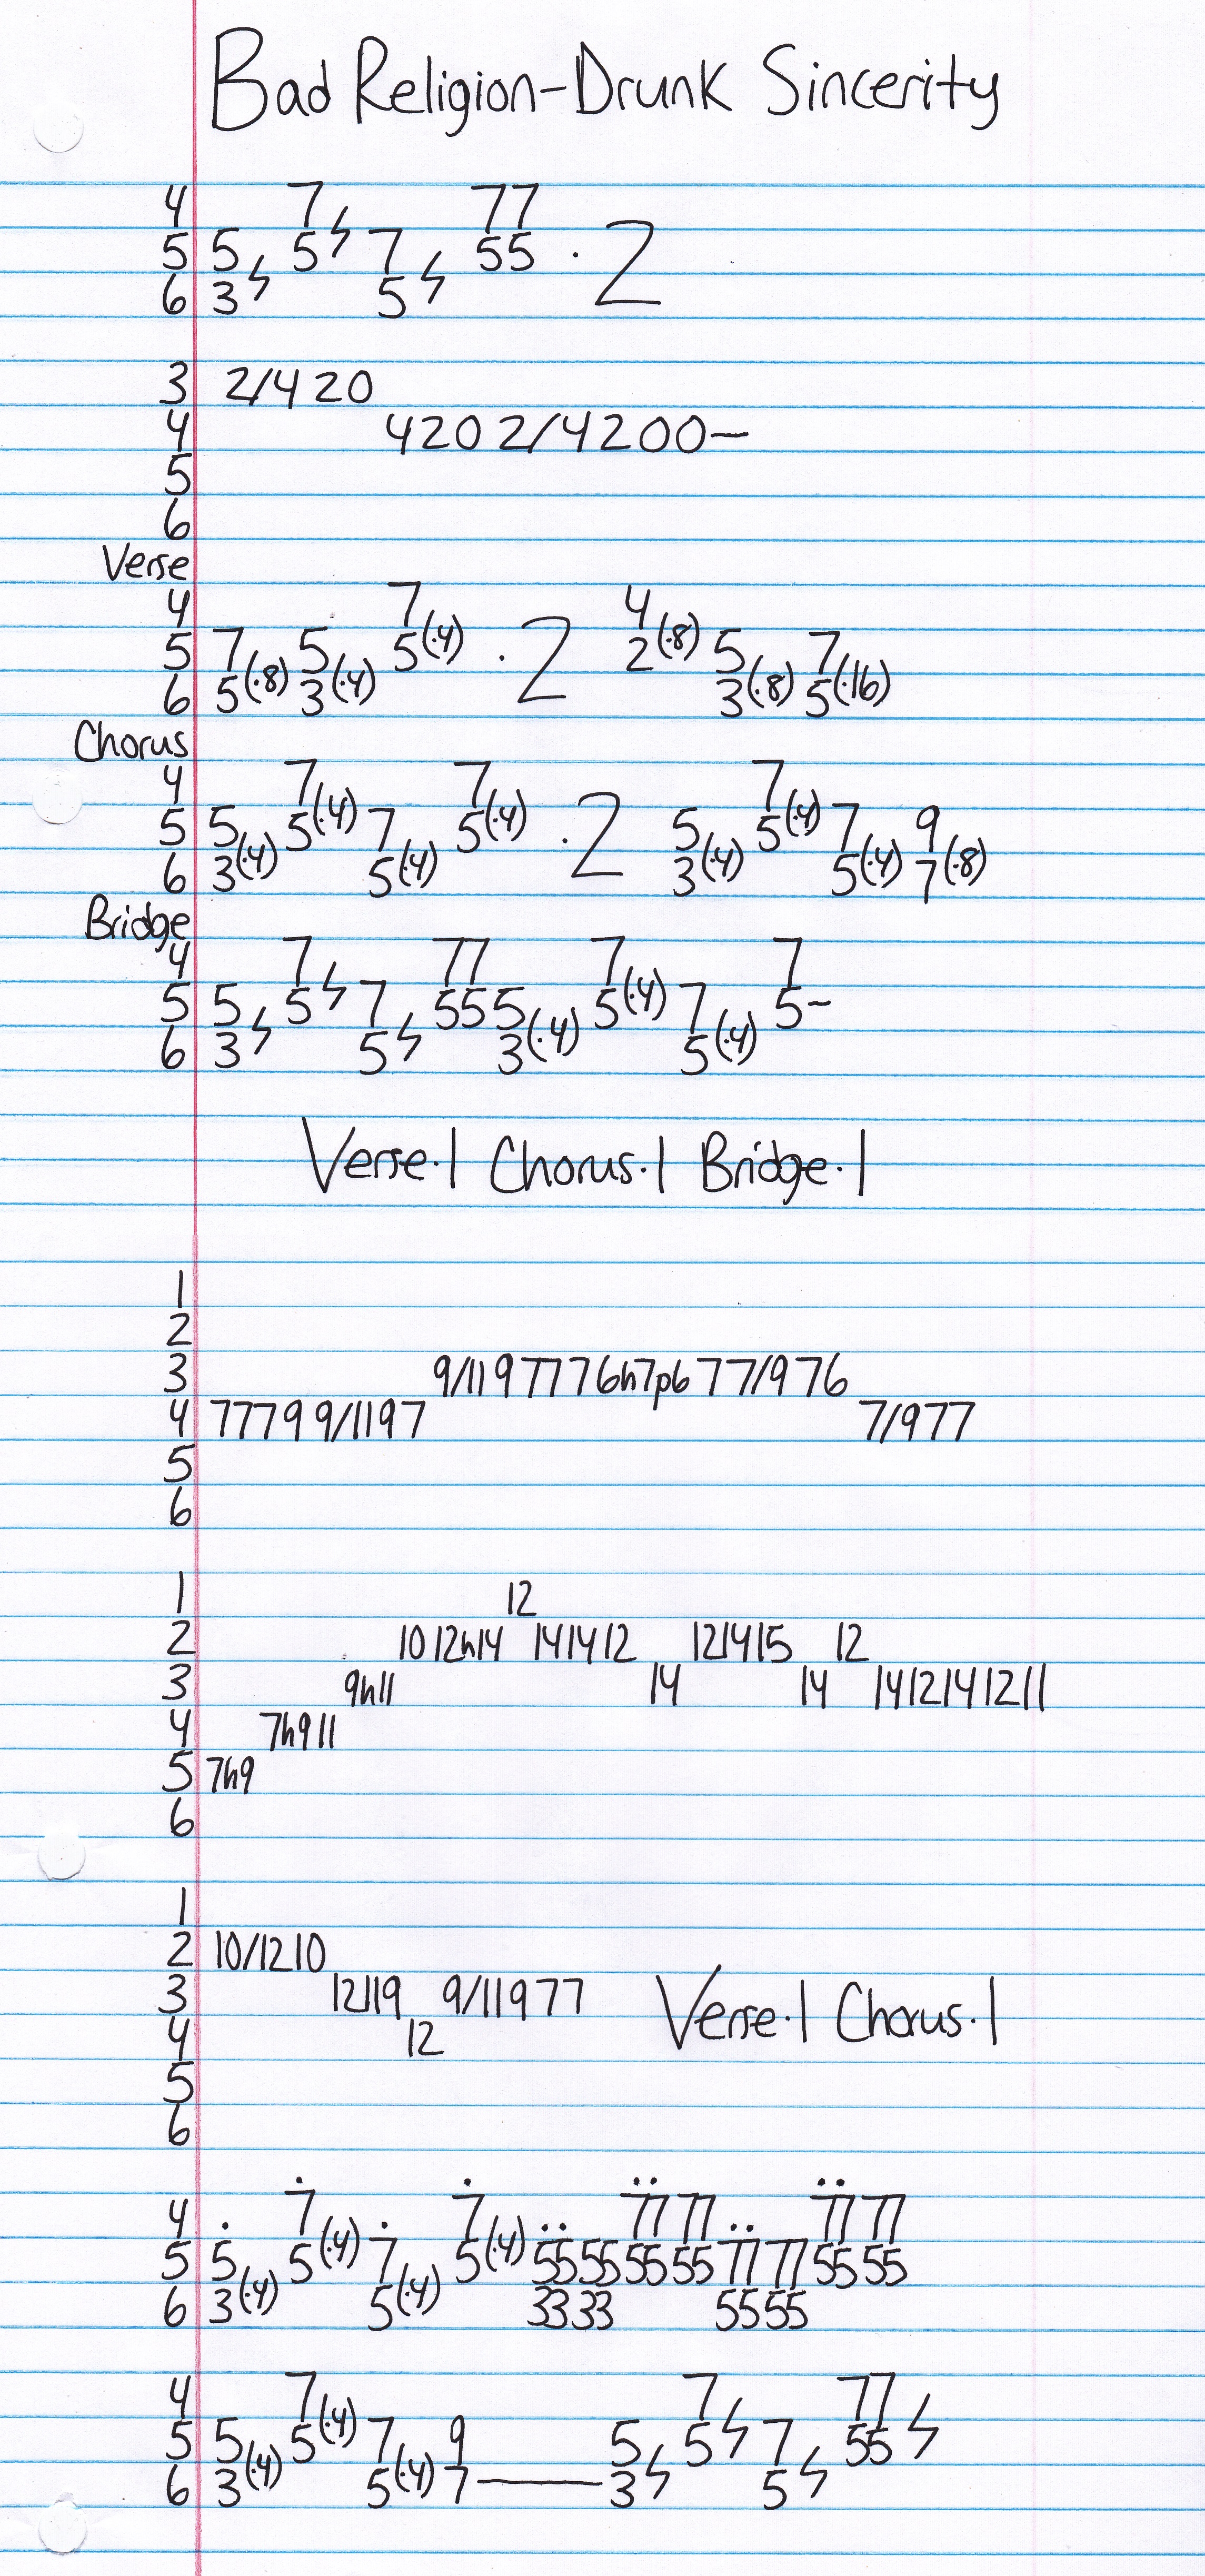 Bad Religion-Drunk Sincerity
4 7ϟ 77
5 5ϟ 5 7ϟ 55 · 2
6 3 5
3 2/4 2 0
4 4 2 0 2/4 2 0 0—
5
6
Verse
4 7 4
5 7 5 5(·4) · 2 2(·8) 5 7
6 5(·8) 3(·4) 3(·8) 5(·16)
Chorus
4 7 7 7
5 5 5(·4) 7 5(·4) · 2 5 5(·4) 7 9
6 3(·4) 5(·4) 3(·4) 5(·4) 7(·8)
Bridge
4 7ϟ 77 7 7
5 5ϟ 5 7ϟ 55 5 5(·4) 7 5~
6 3 5 3(·4) 5(·4)
Verse·1 Chorus·1 Bridge·1
1
2
3 9/11 9 7 7 7 6h7p6 7 7/9 7 6
4 7 7 7 9 9/11 9 7 7/9 7 7
5
6
1 12
2 10 12h14 14 14 12 12 14 15 12
3 9h11 14 14 14 12 14 12 11
4 7h9 11
5 7h9
6
1
2 10/12 10
3 12 11 9 9/11 9 7 7 Verse·1 Chorus·1
4 12
5
6
4 7 7 77 77 77 77
5 5 5(·4) 7 5(·4) 55 55 55 55 77 77 55 55
6 3(·4) 5(·4) 33 33 55 55
4 7 7ϟ 77ϟ
5 5 5(·4) 7 9 5ϟ 5 7ϟ 55
6 3(·4) 5(·4) 7— 3 5